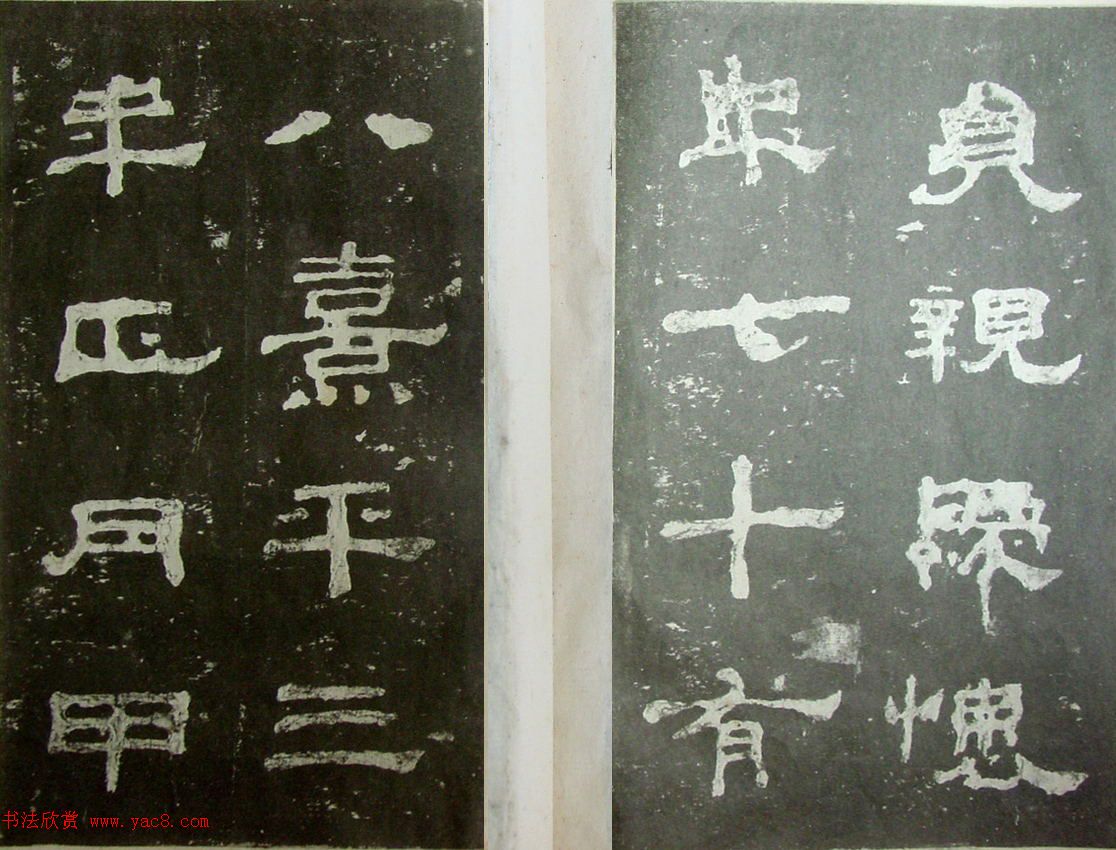 親
年七十有
八熹平三
年正月甲
书法欣赏 www.yac8.com